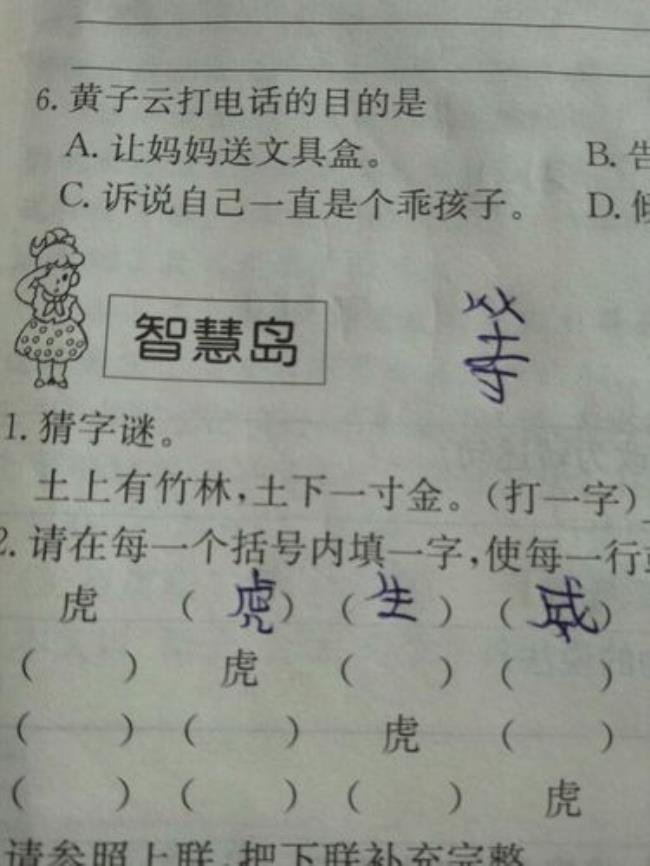 6. 黄子云打电话的目的是
A. 让妈妈送文具盒。 B. 告
C. 诉说自己一直是个乖孩子。 D. 倾
智慧岛
等
1. 猜字谜。
土上有竹林,土下一寸金。(打一字)
2. 请在每一个括号内填一字,使每一行
虎 (虎) (生) (威)
( ) 虎 ( ) ( )
( ) ( ) 虎 ( )
( ) ( ) ( ) 虎
请参照上联,把下联补充完整